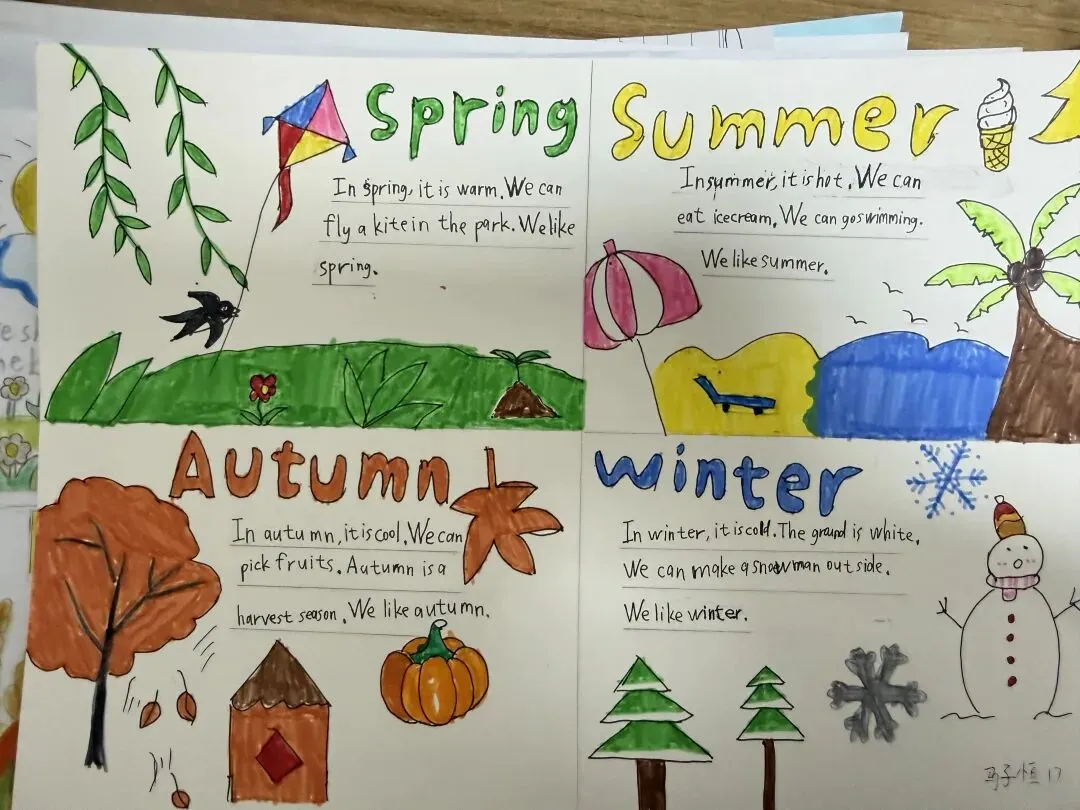 Spring
In Spring, it is warm. We can
fly a kite in the park. We like
spring.
Summer
In summer, it is hot. We can
eat icecream. We can go swimming.
We like summer.
Autumn
In autumn, it is cool. We can
pick fruits. Autumn is a
harvest season. We like autumn.
winter
In winter, it is cold. The ground is white.
We can make a snowman outside.
We like winter.
马子恒 17